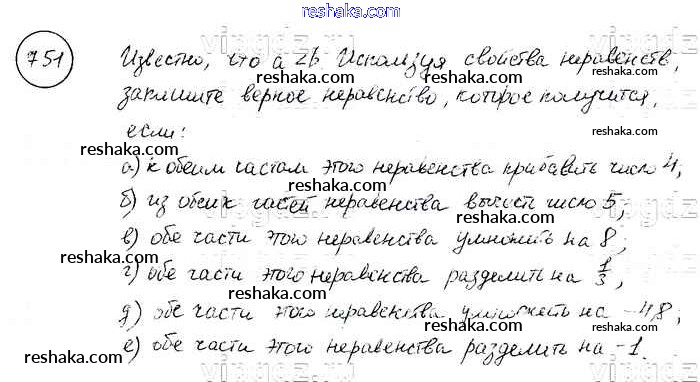 reshaka.com
751 Известно, что a<b. Используя свойства неравенств,
reshaka.com
запишите верное неравенство, которое получится,
если:
reshaka.com
а) к обеим частам этого неравенства прибавить число 4;
reshaka.com
б) из обеих частей неравенства вычесть число 5;
reshaka.com
в) обе части этого неравенства умножить на 8;
reshaka.com
г) обе части этого неравенства разделить на 1/3;
reshaka.com
д) обе части этого неравенства умножить на -4,8;
reshaka.com
е) обе части этого неравенства разделить на -1.
reshaka.com